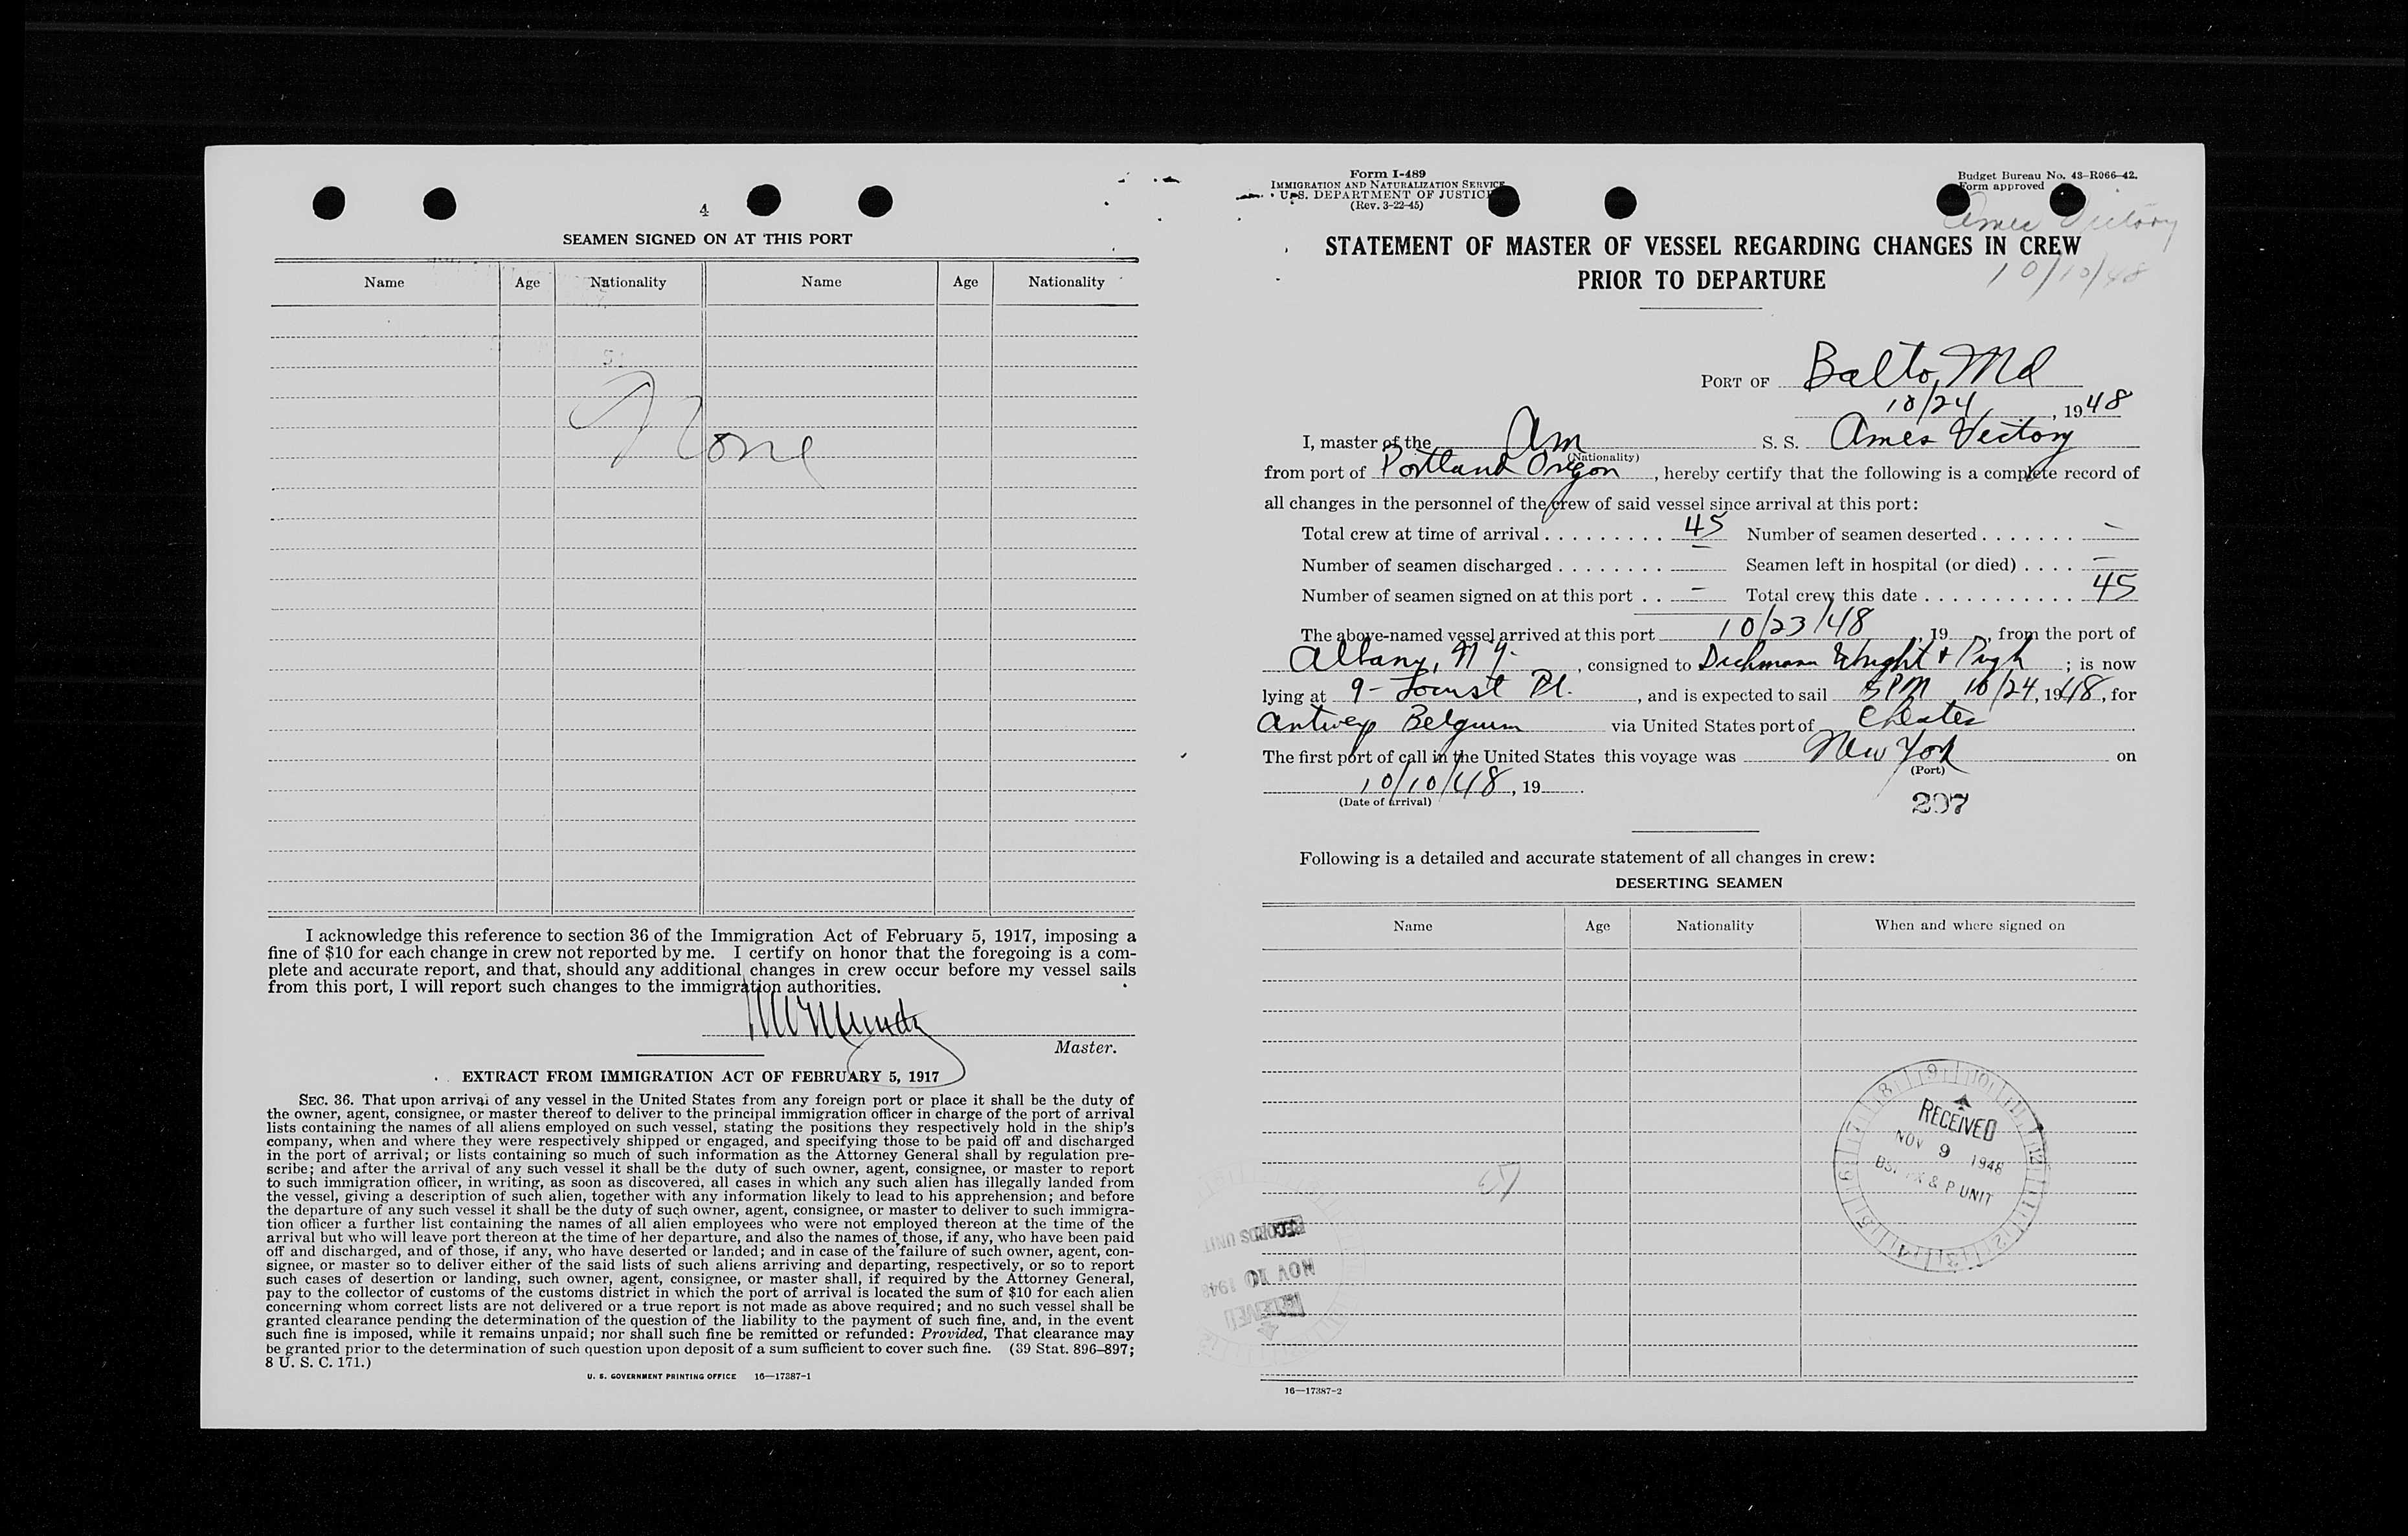 4
SEAMEN SIGNED ON AT THIS PORT
Name Age Nationality Name Age Nationality
None
I acknowledge this reference to section 36 of the Immigration Act of February 5, 1917, imposing a
fine of $10 for each change in crew not reported by me. I certify on honor that the foregoing is a com-
plete and accurate report, and that, should any additional changes in crew occur before my vessel sails
from this port, I will report such changes to the immigration authorities.
Master.
EXTRACT FROM IMMIGRATION ACT OF FEBRUARY 5, 1917
SEC. 36. That upon arrival of any vessel in the United States from any foreign port or place it shall be the duty of
the owner, agent, consignee, or master thereof to deliver to the principal immigration officer in charge of the port of arrival
lists containing the names of all aliens employed on such vessel, stating the positions they respectively hold in the ship's
company, when and where they were respectively shipped or engaged, and specifying those to be paid off and discharged
in the port of arrival; or lists containing so much of such information as the Attorney General shall by regulation pre-
scribe; and after the arrival of any such vessel it shall be the duty of such owner, agent, consignee, or master to report
to such immigration officer, in writing, as soon as discovered, all cases in which any such alien has illegally landed from
the vessel, giving a description of such alien, together with any information likely to lead to his apprehension; and before
the departure of any such vessel it shall be the duty of such owner, agent, consignee, or master to deliver to such immigra-
tion officer a further list containing the names of all alien employees who were not employed thereon at the time of the
arrival but who will leave port thereon at the time of her departure, and also the names of those, if any, who have been paid
off and discharged, and of those, if any, who have deserted or landed; and in case of the failure of such owner, agent, con-
signee, or master so to deliver either of the said lists of such aliens arriving and departing, respectively, or so to report
such cases of desertion or landing, such owner, agent, consignee, or master shall, if required by the Attorney General,
pay to the collector of customs of the customs district in which the port of arrival is located the sum of $10 for each alien
concerning whom correct lists are not delivered or a true report is not made as above required; and no such vessel shall be
granted clearance pending the determination of the question of the liability to the payment of such fine, and, in the event
such fine is imposed, while it remains unpaid; nor shall such fine be remitted or refunded: Provided, That clearance may
be granted prior to the determination of such question upon deposit of a sum sufficient to cover such fine. (39 Stat. 896–897;
8 U. S. C. 171.)
U. S. GOVERNMENT PRINTING OFFICE 16—17387-1
Form I-489
IMMIGRATION AND NATURALIZATION SERVICE
U. S. DEPARTMENT OF JUSTICE
(Rev. 3-22-45)
Budget Bureau No. 43-R066-42.
Form approved
Ames Victory
10/10/48
STATEMENT OF MASTER OF VESSEL REGARDING CHANGES IN CREW
PRIOR TO DEPARTURE
PORT OF Balto, Md
10/24, 1948
I, master of the Am S. S. Ames Victory
(Nationality)
from port of Portland Oregon, hereby certify that the following is a complete record of
all changes in the personnel of the crew of said vessel since arrival at this port:
Total crew at time of arrival ......... 45 Number of seamen deserted ....... -
Number of seamen discharged ........ - Seamen left in hospital (or died) .... -
Number of seamen signed on at this port .. - Total crew this date ............ 45
The above-named vessel arrived at this port 10/23/48, 19, from the port of
Albany, N.Y., consigned to Dichmann Wright & Pugh; is now
lying at 9 - Locust Pt., and is expected to sail 5 PM 10/24, 1948, for
Antwerp Belgium via United States port of Chester
The first port of call in the United States this voyage was New York on
(Port)
10/10/48, 19
(Date of arrival)
297
Following is a detailed and accurate statement of all changes in crew:
DESERTING SEAMEN
Name Age Nationality When and where signed on
RECEIVED
NOV 9 1948
& P UNIT
RECORDS UNIT
NOV 10 1948
RECEIVED
16—17387-2